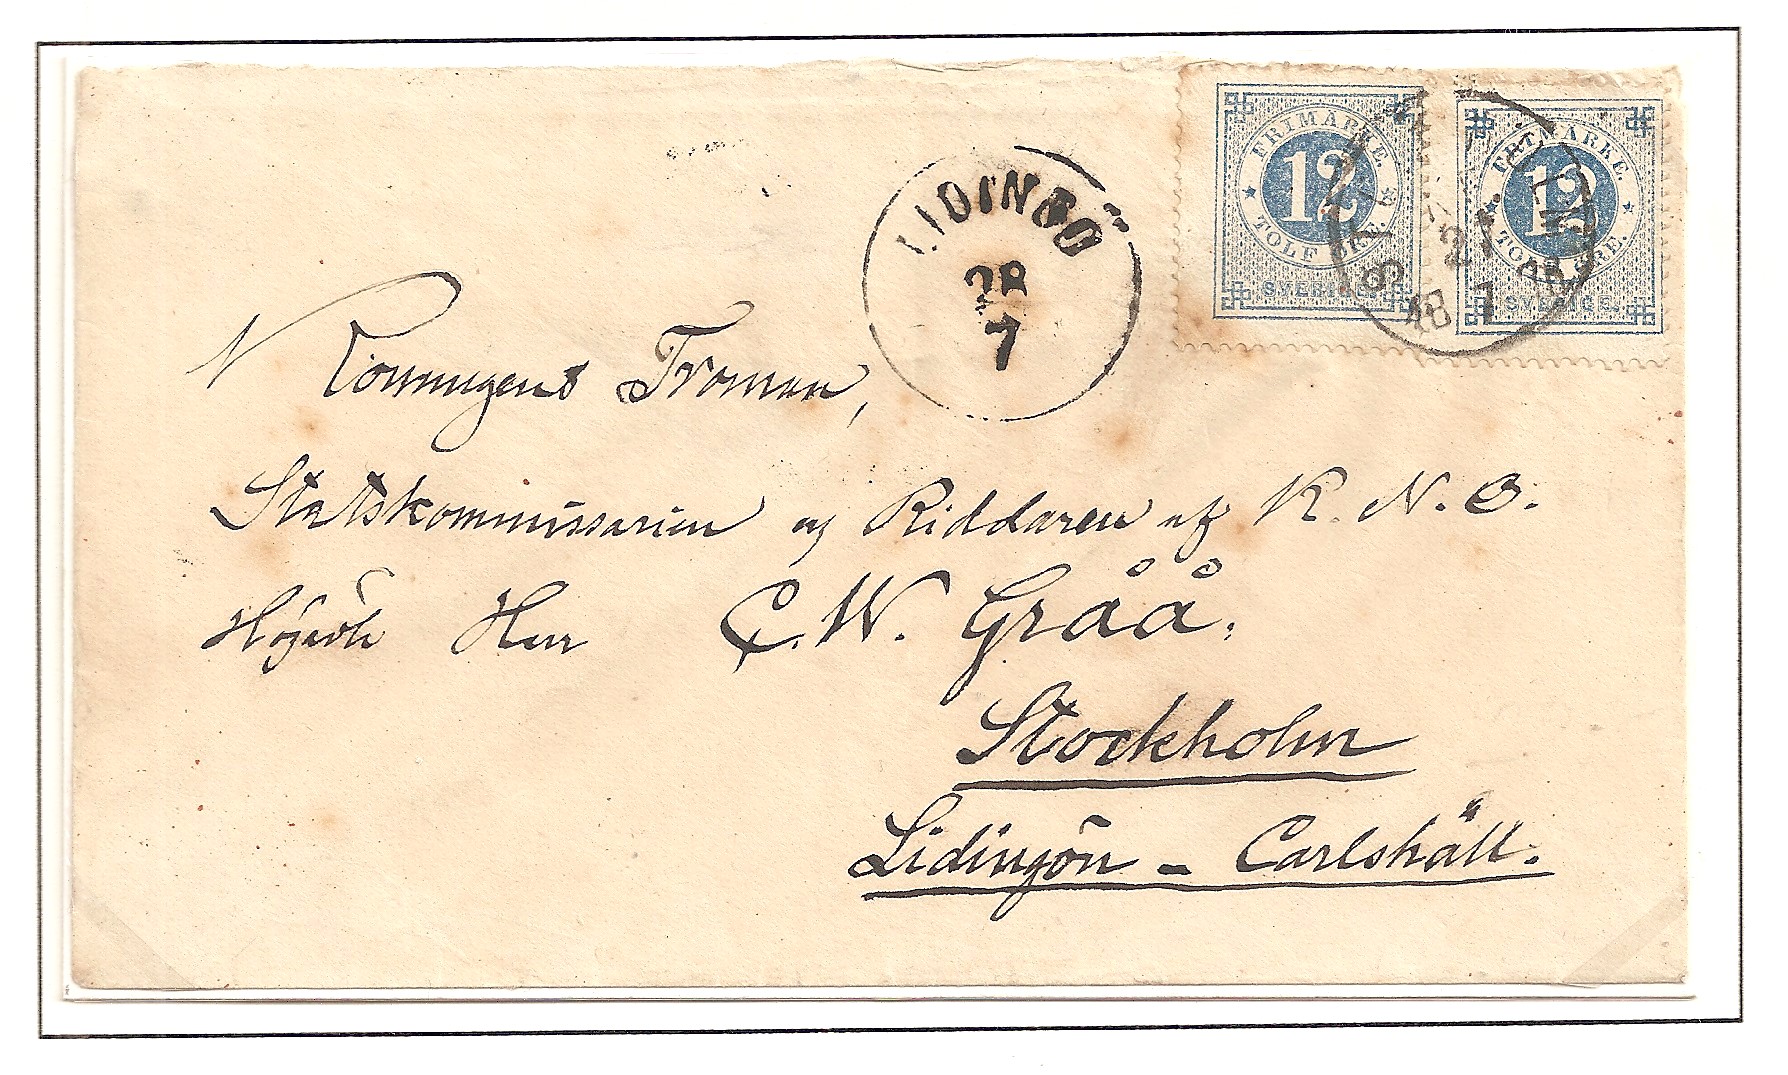 FRIMÄRKE.
12
TOLF ÖRE.
SVERIGE.
FRIMÄRKE.
12
TOLF ÖRE.
SVERIGE.
LIDINGÖ
28
7
Konungens Troman,
Statskommissarien og Riddaren af K. N. O.
Herr C. W. Gråå,
Stockholm
Lidingön - Carlshäll.